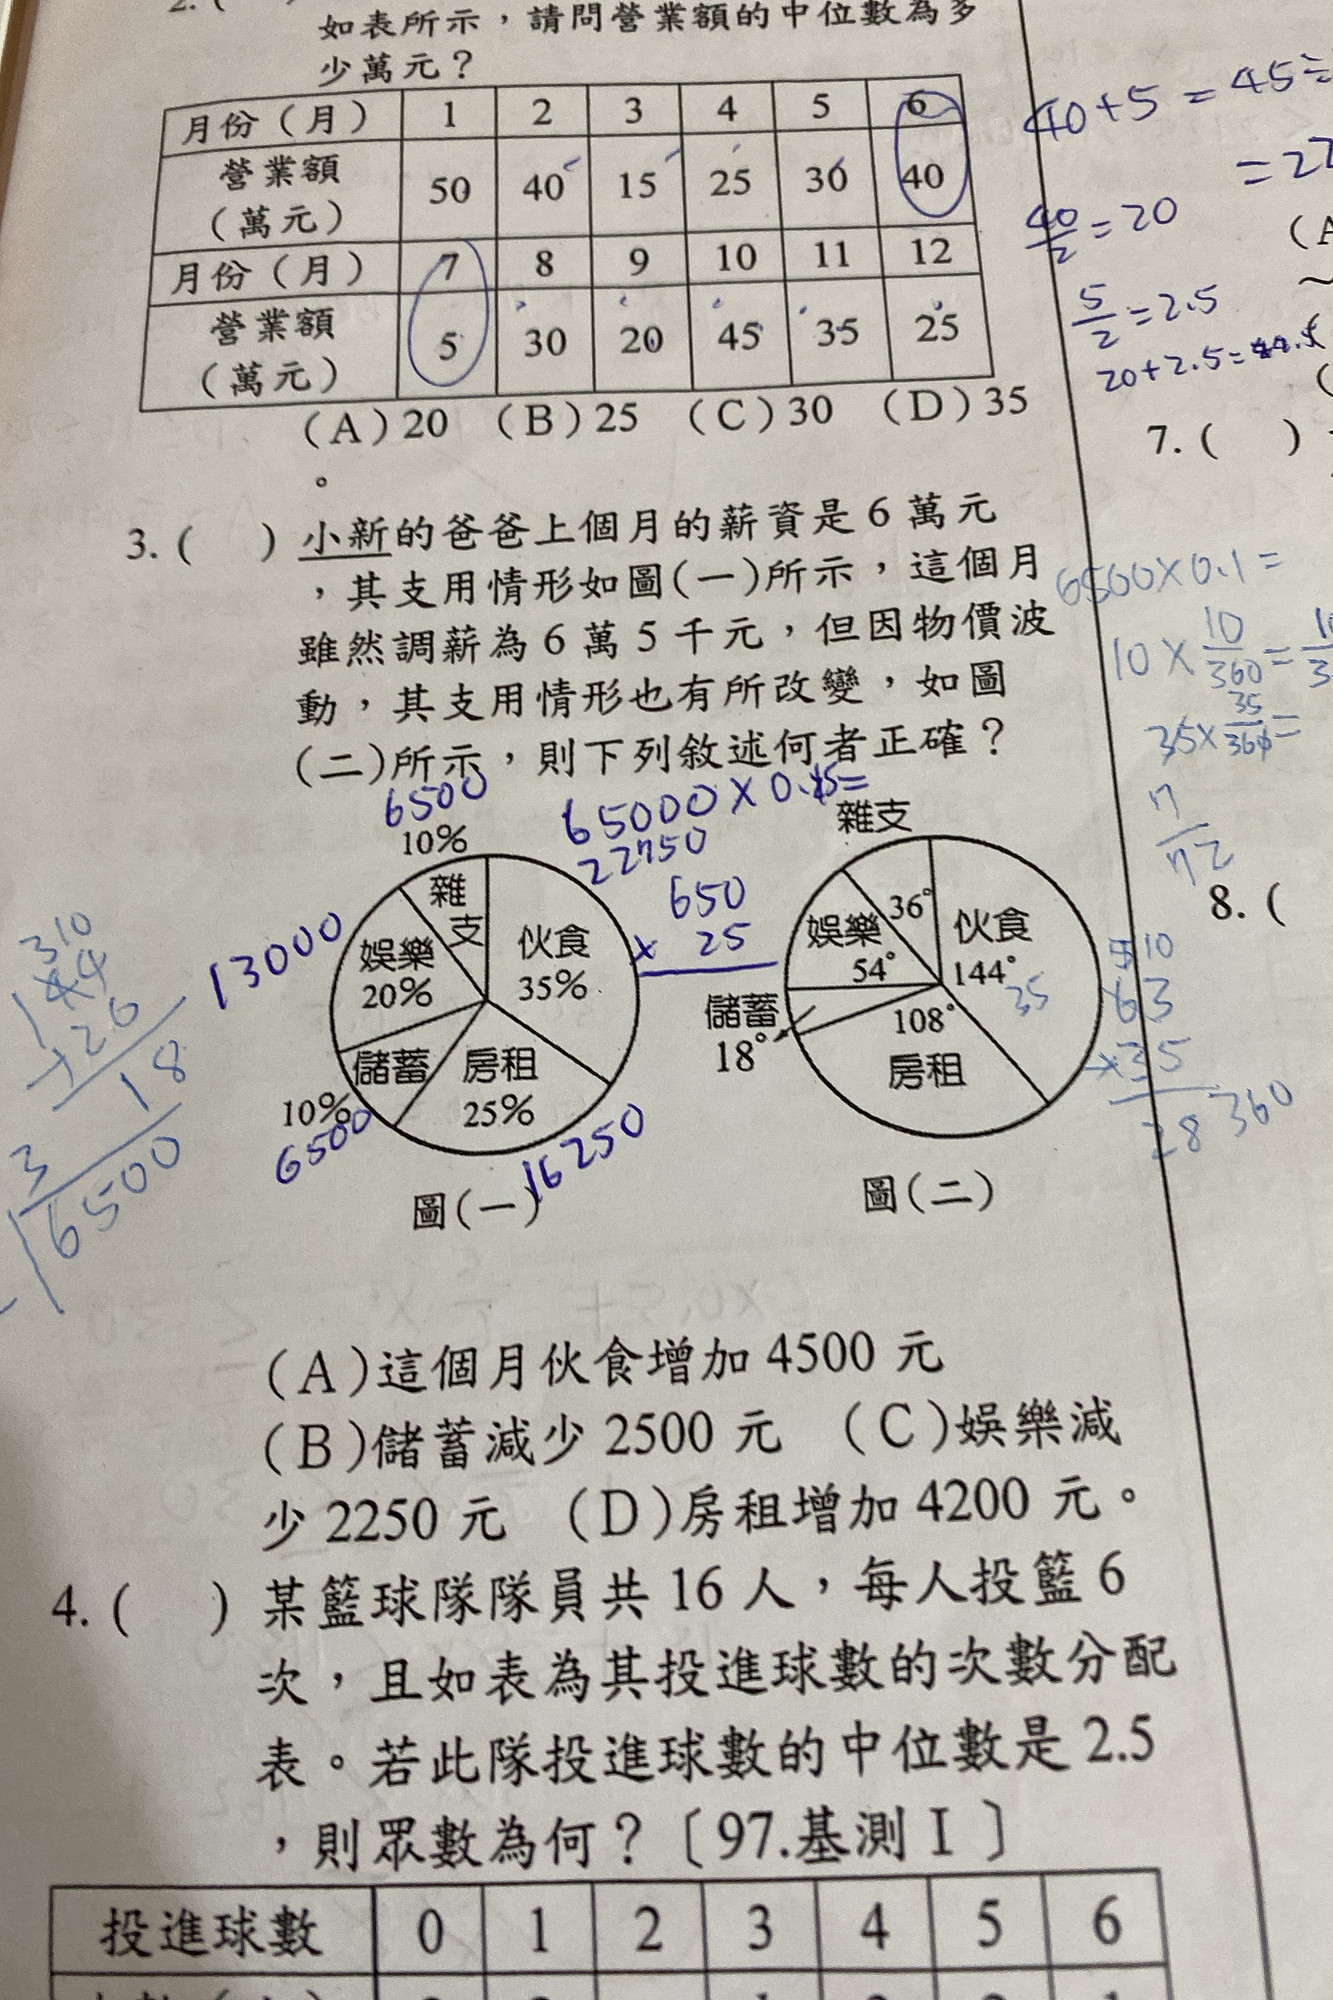 2. (
如表所示，請問營業額的中位數為多
少萬元？
月份（月） 1 2 3 4 5 6
營業額（萬元） 50 40 15 25 30 40
月份（月） 7 8 9 10 11 12
營業額（萬元） 5 30 20 45 35 25
(A)20 (B)25 (C)30 (D)35
。
40+5=45÷
=22
40/2=20
5/2=2.5
20+2.5=
(A
7. ( )
3. ( ) 小新的爸爸上個月的薪資是6萬元
，其支用情形如圖(一)所示，這個月
雖然調薪為6萬5千元，但因物價波
動，其支用情形也有所改變，如圖
(二)所示，則下列敘述何者正確？
6500×0.1=
10×10/360=
35×35/360=
7/72
8. (
6500
65000×0.15=
22750
650
× 25
10%
雜支
伙食
35%
娛樂
20%
13000
儲蓄
10%
6500
房租
25%
16250
圖(一)
雜支
36°
伙食
144°
35
娛樂
54°
儲蓄
18°
108°
房租
圖(二)
310
144
126
18
3
6500
5 10
63
35
28 360
(A)這個月伙食增加4500元
(B)儲蓄減少2500元 (C)娛樂減
少2250元 (D)房租增加4200元。
4. ( ) 某籃球隊隊員共16人，每人投籃6
次，且如表為其投進球數的次數分配
表。若此隊投進球數的中位數是2.5
，則眾數為何？〔97.基測Ⅰ〕
投進球數 0 1 2 3 4 5 6